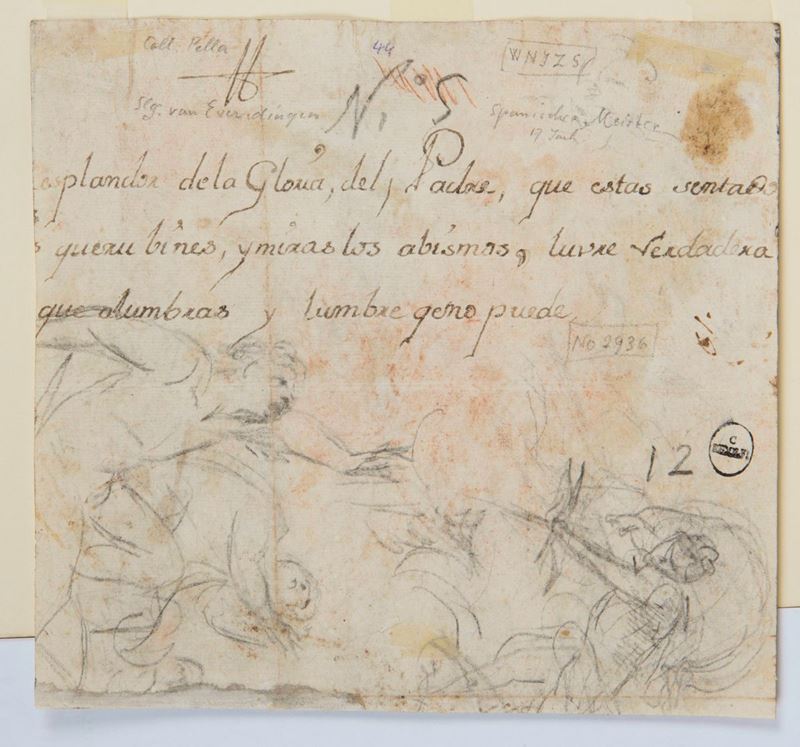 Coll. Pella
44
WNJZS
Slg. van Everdingen
N.º 5
Spanischer Meister
17 Jarh
esplandor dela Gloria, del, Padre, que estas sentado
s querubines, ymiras los abismos, luvre verdadera
que alumbras y lumbre qeno puede,
No 2936
12
C